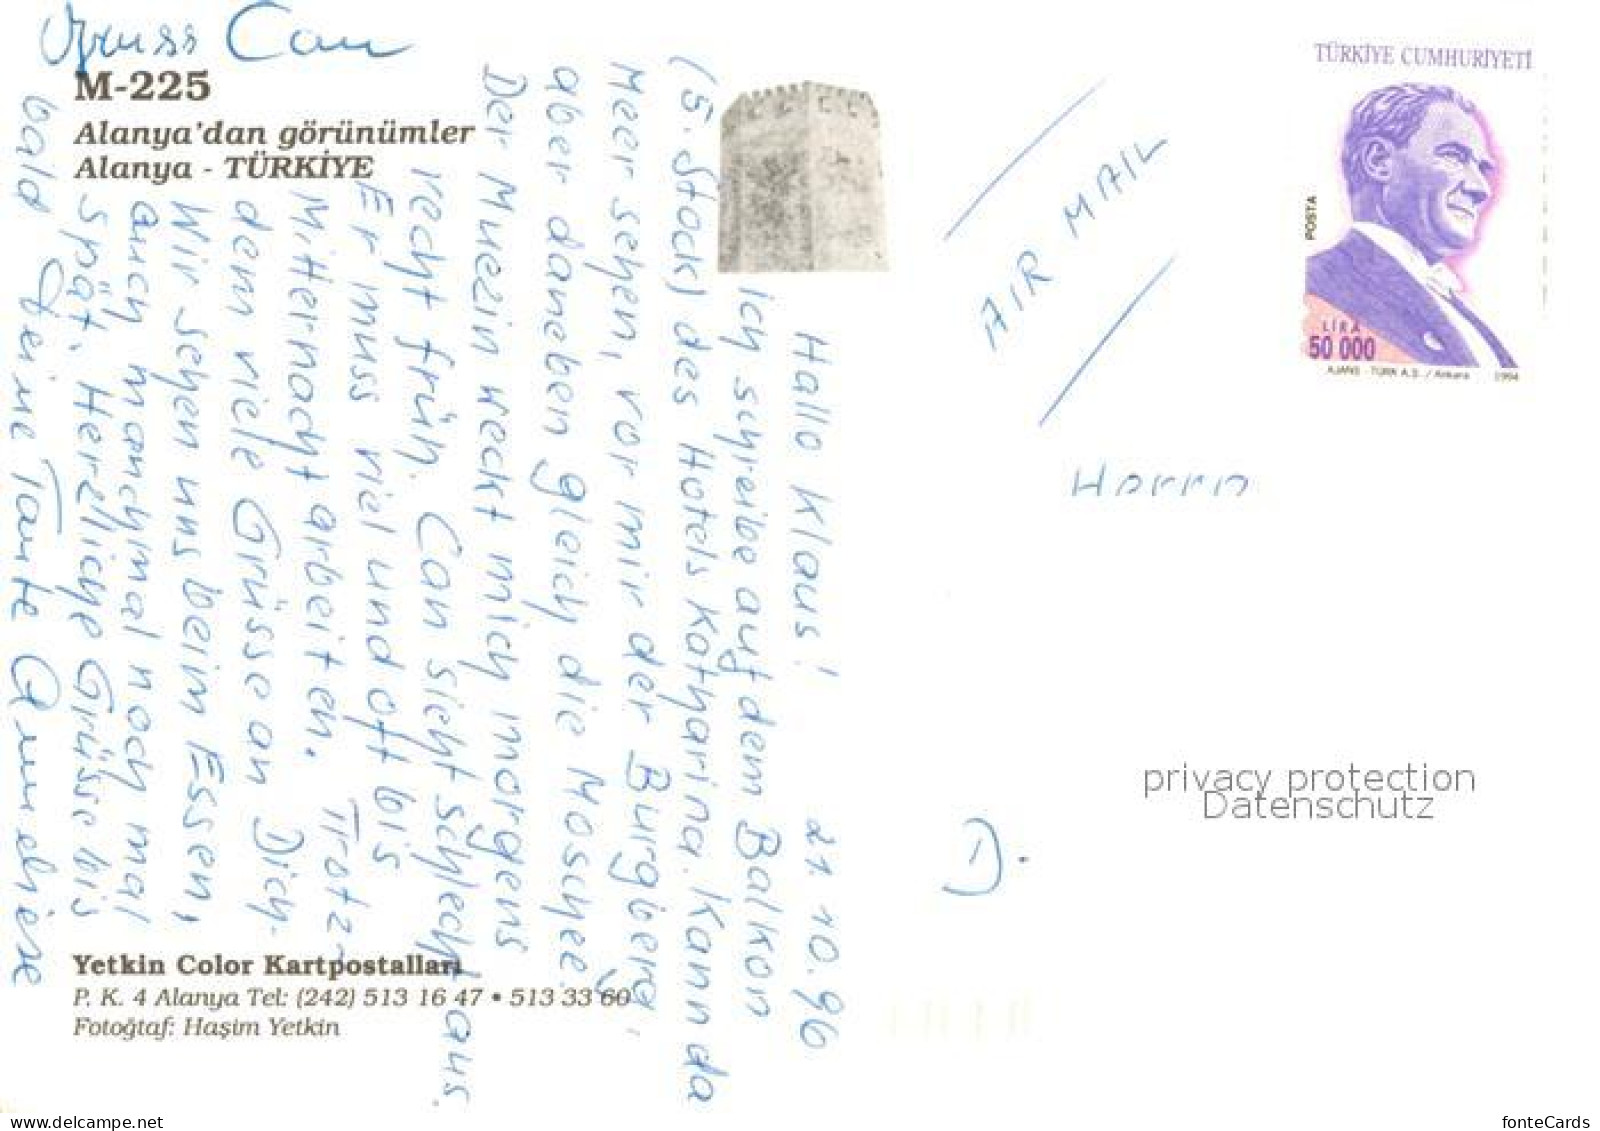 Gruss Can
M-225
Alanya'dan görünümler
Alanya - TÜRKİYE
Hallo Klaus! 21.10.96
ich schreibe auf dem Balkon
(5. Stock) des Hotels Katharina. Kann da
Meer sehen, vor mir der Burgberg,
aber daneben gleich die Moschee.
Der Muezin weckt mich morgens
recht früh. Can sieht schlecht aus.
Er muss viel und oft bis
Mitternacht arbeiten. Trotz-
dem viele Grüsse an Dich.
Wir sehen uns beim Essen,
auch manchmal noch mal
spät. Herzliche Grüsse bis
bald Deine Tante Anneliese
Yetkin Color Kartpostalları
P. K. 4 Alanya Tel: (242) 513 16 47 • 513 33 60
Fotoğtaf: Haşim Yetkin
AIR MAIL
TÜRKİYE CUMHURİYETİ
POSTA
LİRA
50 000
AJANS - TÜRK A.Ş. / Ankara 1994
Herrn
D.
privacy protection
Datenschutz
www.delcampe.net
fonteCards